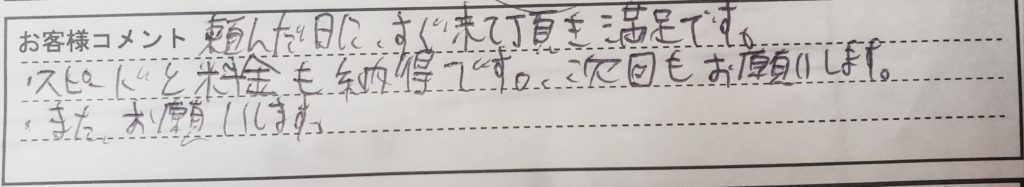 お客様コメント 頼んだ日に、すぐ来て頂き満足です。
スピードと料金も納得です。次回もお願いします。
また、お願いします。